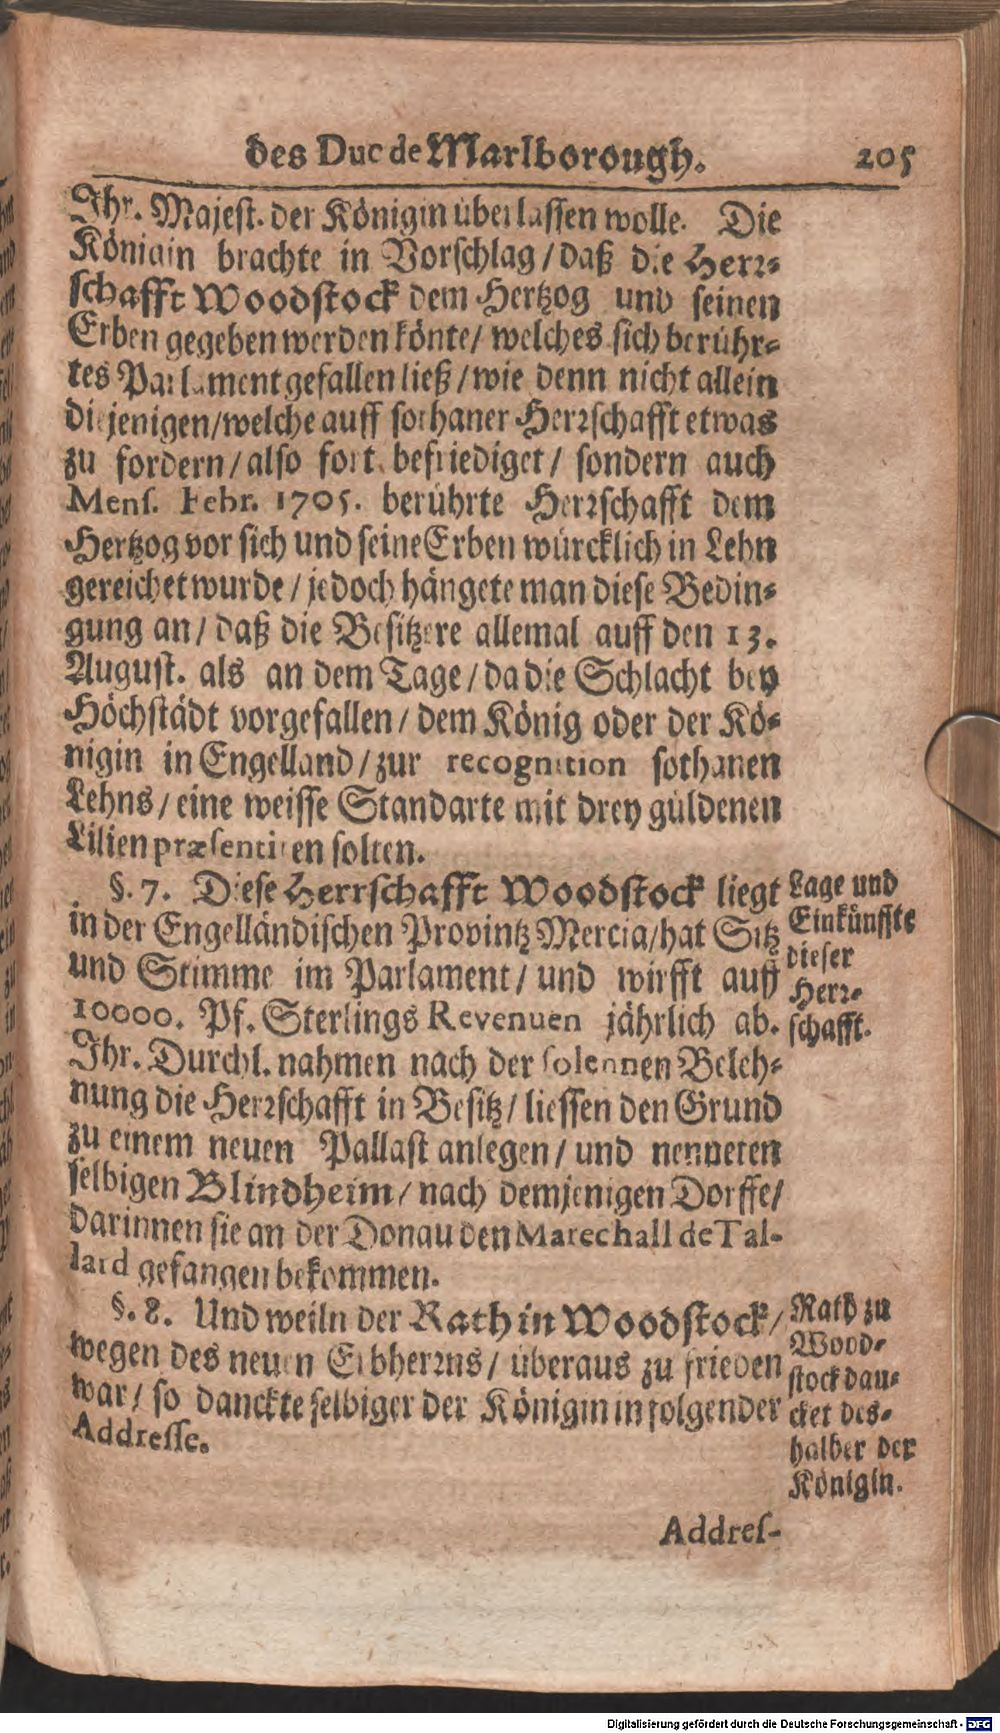 des Duc de Marlborough. 205
Ihr. Majest. der Königin überlassen wolle. Die
Königin brachte in Vorschlag / daß die Herr-
schafft Woodstock dem Hertzog und seinen
Erben gegeben werden könte / welches sich berühr-
tes Parlament gefallen ließ / wie denn nicht allein
diejenigen / welche auff sothaner Herrschafft etwas
zu fordern / also fort befriediget / sondern auch
Mens. Febr. 1705. berührte Herrschafft dem
Hertzog vor sich und seine Erben würcklich in Lehn
gereichet wurde / jedoch hängete man diese Bedin-
gung an / daß die Besitzere allemal auff den 13.
August. als an dem Tage / da die Schlacht bey
Höchstädt vorgefallen / dem König oder der Kö-
nigin in Engelland / zur recognition sothanen
Lehns / eine weisse Standarte mit drey güldenen
Lilien præsentiren solten.
§. 7. Diese Herrschafft Woodstock liegt
in der Engelländischen Provintz Mercia / hat Sitz
und Stimme im Parlament / und wirfft auff
10000. Pf. Sterlings Revenuen jährlich ab.
Ihr. Durchl. nahmen nach der solennen Beleh-
nung die Herrschafft in Besitz / liessen den Grund
zu einem neuen Pallast anlegen / und nenneten
selbigen Blindheim / nach demjenigen Dorffe /
darinnen sie an der Donau den Marechall de Tal-
lard gefangen bekommen.
Lage und
Einkünffte
dieser
Herr-
schafft.
§. 8. Und weiln der Rath in Woodstock /
wegen des neuen Erbherrns / überaus zu frieden
war / so danckte selbiger der Königin in folgender
Addresse.
Rath zu
Wood-
stock dan-
cket des-
halber der
Königin.
Addres-
Digitalisierung gefördert durch die Deutsche Forschungsgemeinschaft - DFG